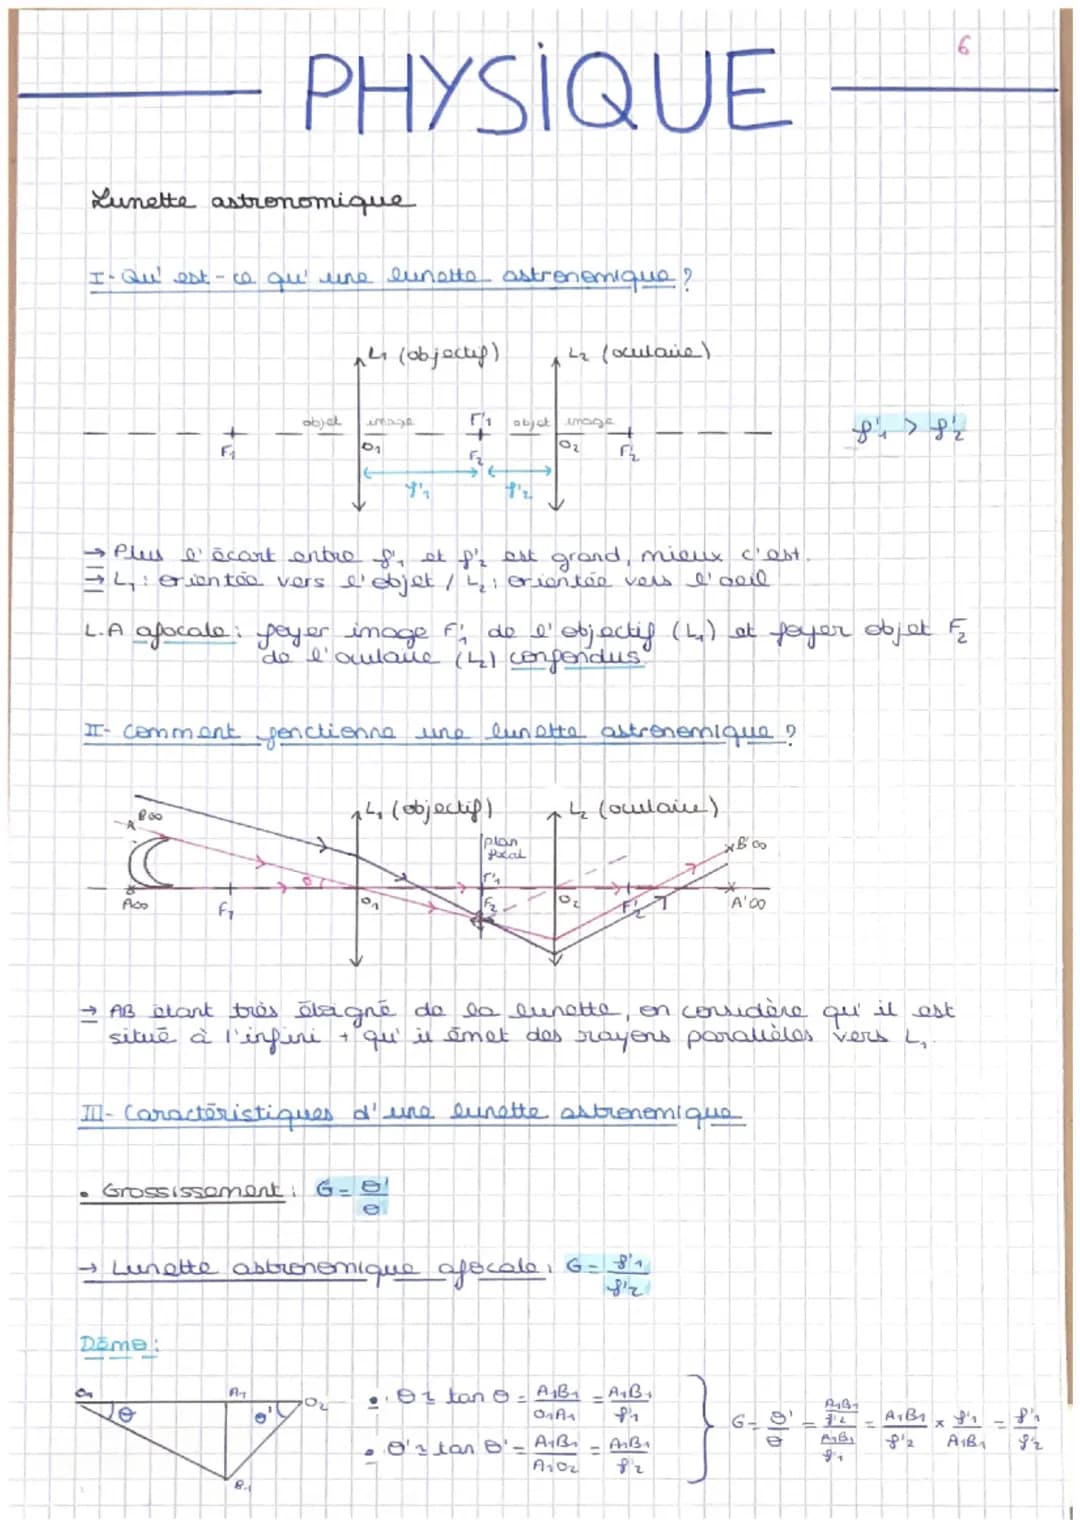 6
PHYSIQUE
Lunette astronomique
I- Qu'est-ce qu'une lunette astronomique ?
L1 (objectif) L2 (oculaire)
objet image F'1 objet image
F1 O1 F2 O2 F'2
f'1 > f'2
f'1 f'2
→ Plus l'écart entre f'1 et f'2 est grand, mieux c'est.
→ L1 : orientée vers l'objet / L2 : orientée vers l'oeil
L.A afocale : foyer image F'1 de l'objectif (L1) et foyer objet F2
de l'oculaire (L2) confondus.
II- Comment fonctionne une lunette astronomique ?
L1 (objectif) L2 (oculaire)
B∞ plan focal B'∞
θ F'1
A∞ F1 O1 F2 O2 F'2 A'∞
→ AB étant très éloigné de la lunette, on considère qu'il est
situé à l'infini + qu'il émet des rayons parallèles vers L1.
III- Caractéristiques d'une lunette astronomique
• Grossissement : G = θ'/θ
→ Lunette astronomique afocale : G = f'1/f'2
Démo :
O1 A1 O2
θ θ'
B1
• θ ≈ tan θ = A1B1/O1A1 = A1B1/f'1
• θ' ≈ tan θ' = A1B1/A1O2 = A1B1/f'2
G = θ'/θ = (A1B1/f'2)/(A1B1/f'1) = A1B1/f'2 × f'1/A1B1 = f'1/f'2